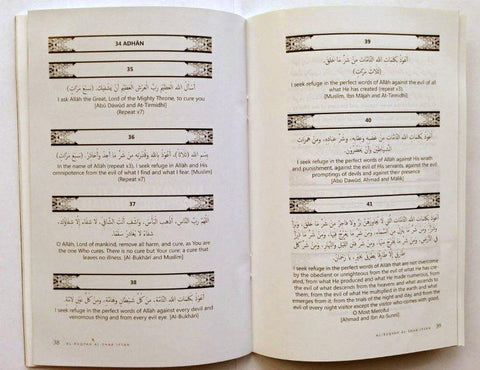 34 ADHĀN
35
أسأل الله العظيم رب العرش العظيم أن يشفيك. (سبع مرات)
I ask Allāh the Great, Lord of the Mighty Throne, to cure you
[Abū Dāwūd and At-Tirmidhī]
(Repeat x7)
36
بسم الله (ثلاثا)، أعوذ بالله وقدرته من شر ما أجد وأحاذر. (سبع مرات)
In the name of Allāh (repeat x3), I seek refuge in Allāh and His
omnipotence from the evil of what I find and what I fear. [Muslim]
(Repeat x7)
37
اللهم رب الناس، أذهب البأس، واشف أنت الشافي، لا شفاء إلا شفاؤك،
شفاء لا يغادر سقما.
O Allāh, Lord of mankind, remove all harm, and cure, as You are
the one Who cures. There is no cure but Your cure: a cure that
leaves no illness. [Al-Bukhārī and Muslim]
38
أعوذ بكلمات الله التامة، من كل شيطان وهامة، ومن كل عين لامة.
I seek refuge in the perfect words of Allāh against every devil and
venomous thing and from every evil eye. [Al-Bukhārī]
38
AL-RUQYAH AL-SHAR'IYYAH
39
أعوذ بكلمات الله التامات من شر ما خلق.
(ثلاث مرات)
I seek refuge in the perfect words of Allāh against the evil of all
what He has created (repeat x3).
[Muslim, Ibn Mājah and At-Tirmidhī]
40
أعوذ بكلمات الله التامات من غضبه وعقابه، وشر عباده، ومن همزات
الشياطين وأن يحضرون.
I seek refuge in the perfect words of Allāh against His wrath
and punishment, against the evil of His servants, against the evil
promptings of devils and against their presence
[Abū Dāwud, Ahmad and Mālik]
41
أعوذ بكلمات الله التامات التي لا يجاوزهن بر ولا فاجر من شر ما خلق،
I seek refuge in the perfect words of Allāh that are not overcome
by the obedient or unrighteous from the evil of what He has cre-
ated, from what He produced and what He made to increase,
from the evil of what descends from the heaven, and what ascends
to it, from the evil of what He multiplied in the earth and what
emerges from it; from the trials of the night and day, and from the
evil of every night visitor except the visitor who comes with good.
O Most Merciful
[Ahmad and Ibn As-Sunnī]
AL-RUQYAH AL-SHAR'IYYAH
39